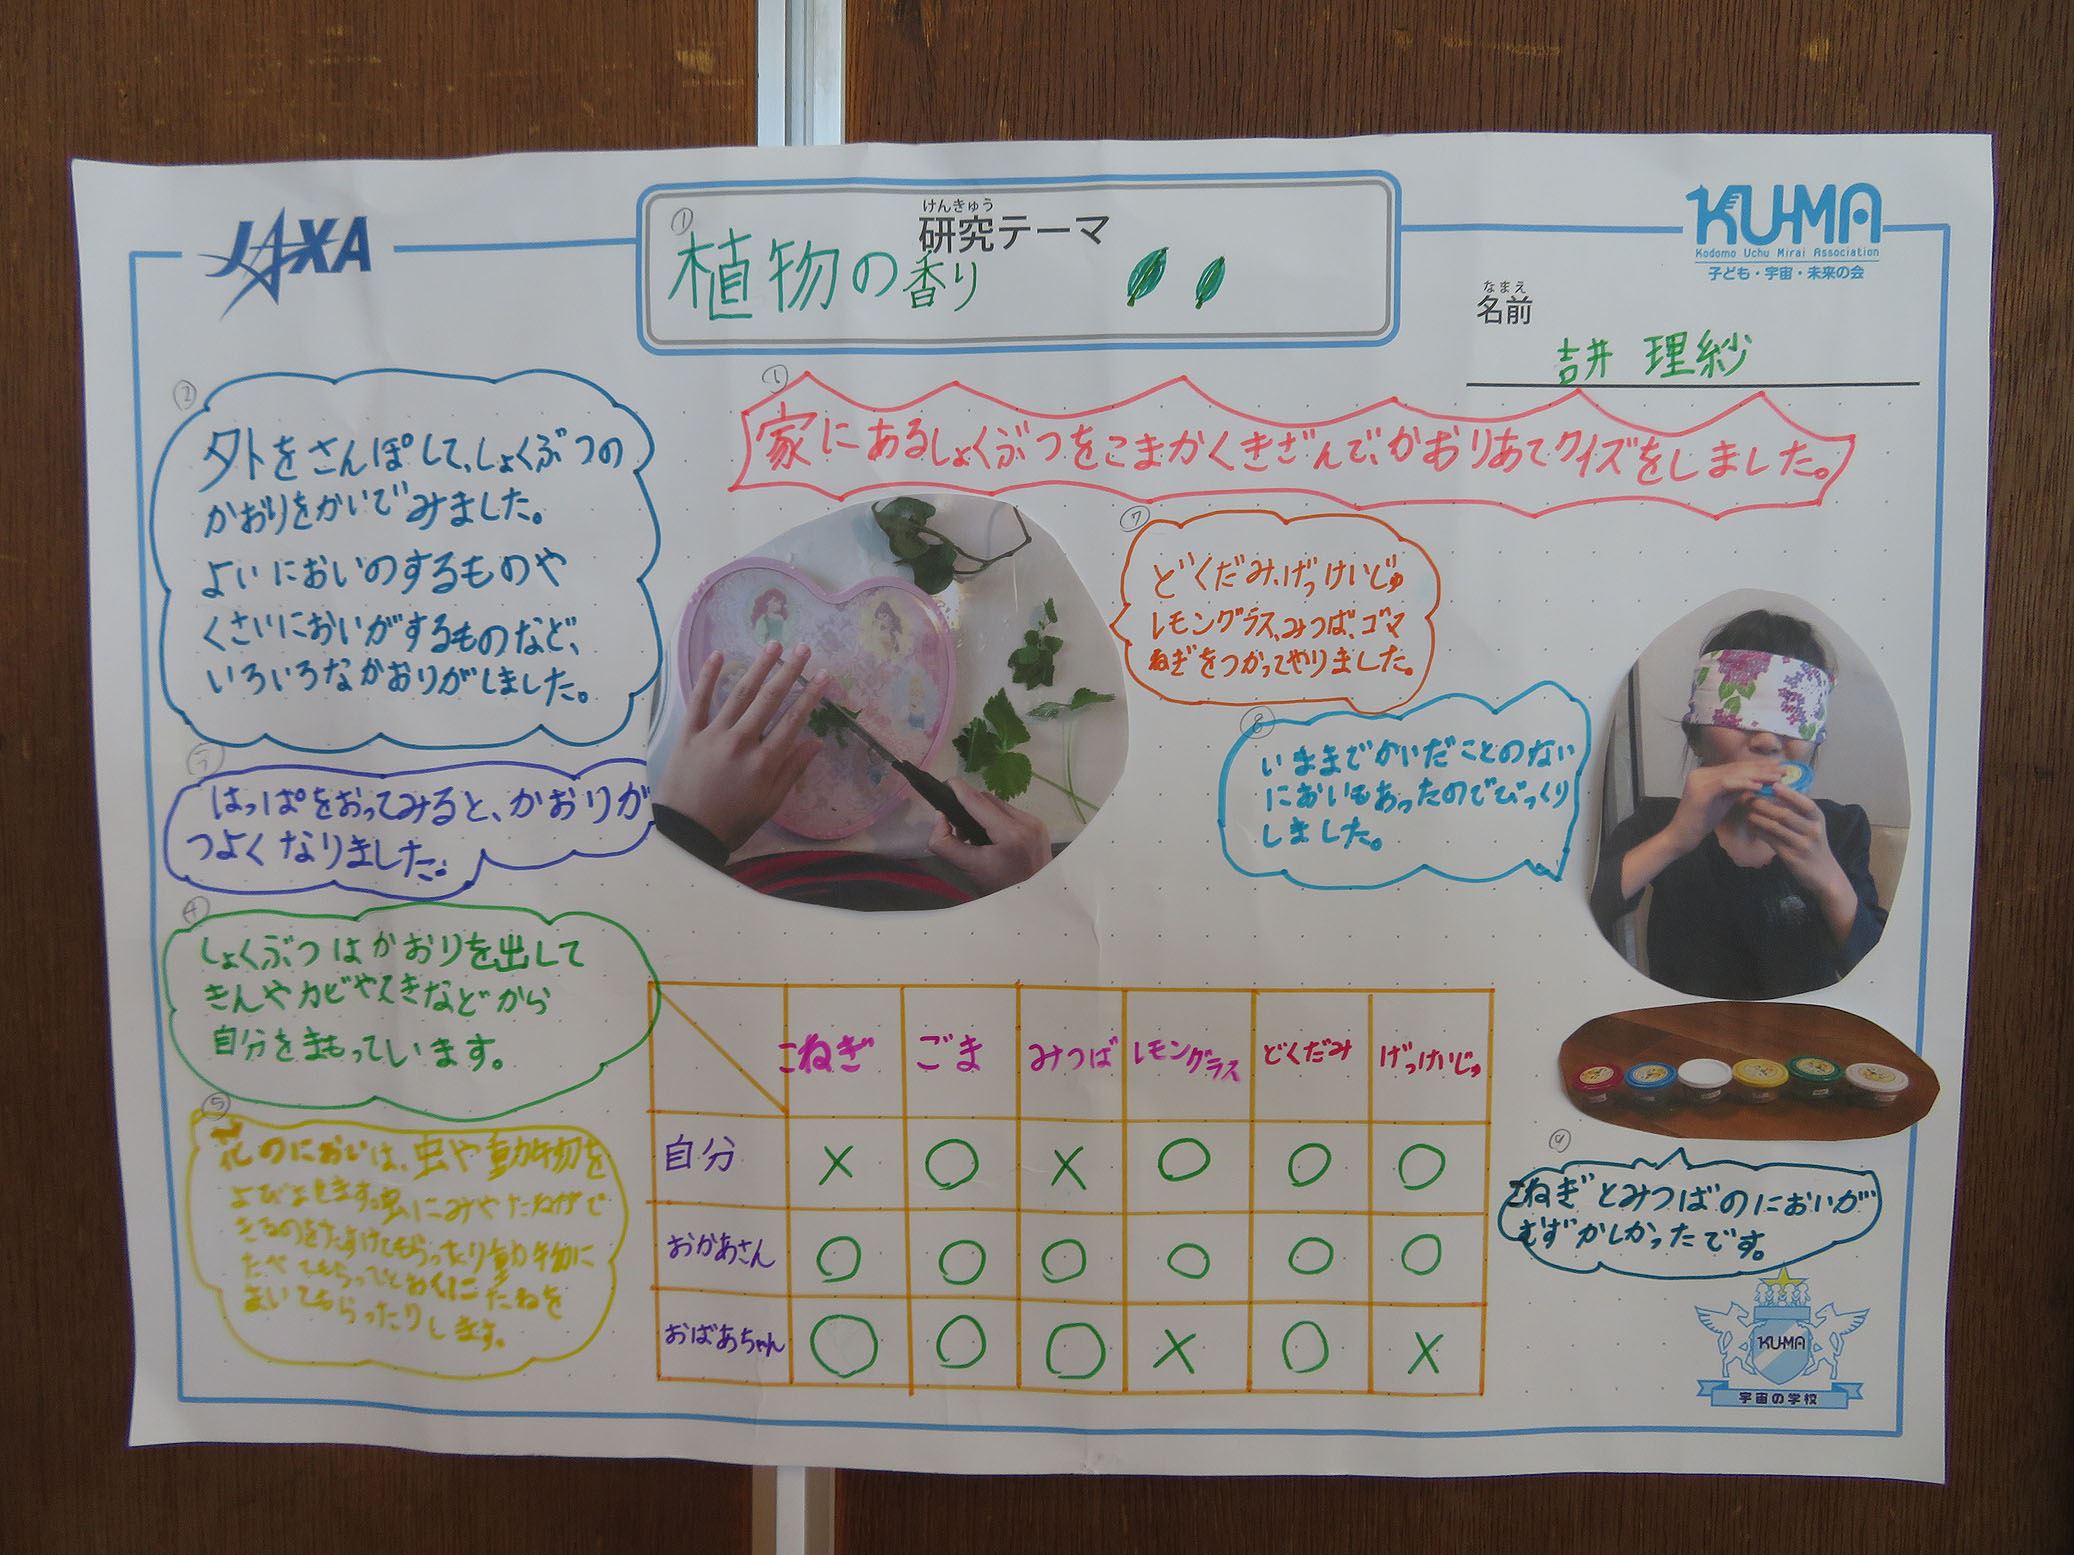 JAXA
けんきゅう
研究テーマ
①
植物の香り
KU-MA
Kodomo Uchu Mirai Association
子ども・宇宙・未来の会
なまえ
名前
吉井 理紗
②
外をさんぽして、しょくぶつの
かおりをかいでみました。
よいにおいのするものや
くさいにおいがするものなど、
いろいろなかおりがしました。
③
はっぱをおってみると、かおりが
つよくなりました。
④
しょくぶつはかおりを出して
きんやカビやてきなどから
自分をまもっています。
⑤
花のにおいは、虫や動物を
よびよせます。虫にみやたねがで
きるのをたすけてもらったり動物に
たべてもらってとおくにたねを
まいてもらったりします。
⑥
家にあるしょくぶつをこまかくきざんで、かおりあてクイズをしました。
⑦
どくだみ、げっけいじゅ
レモングラス、みつば、ゴマ
ねぎをつかってやりました。
⑧
いままでかいだことのない
においもあったのでびっくり
しました。
こねぎ ごま みつば レモングラス どくだみ げっけいじゅ
自分 × ○ × ○ ○ ○
おかあさん ○ ○ ○ ○ ○ ○
おばあちゃん ○ ○ ○ × ○ ×
⑨
こねぎとみつばのにおいが
むずかしかったです。
KU-MA
宇宙の学校